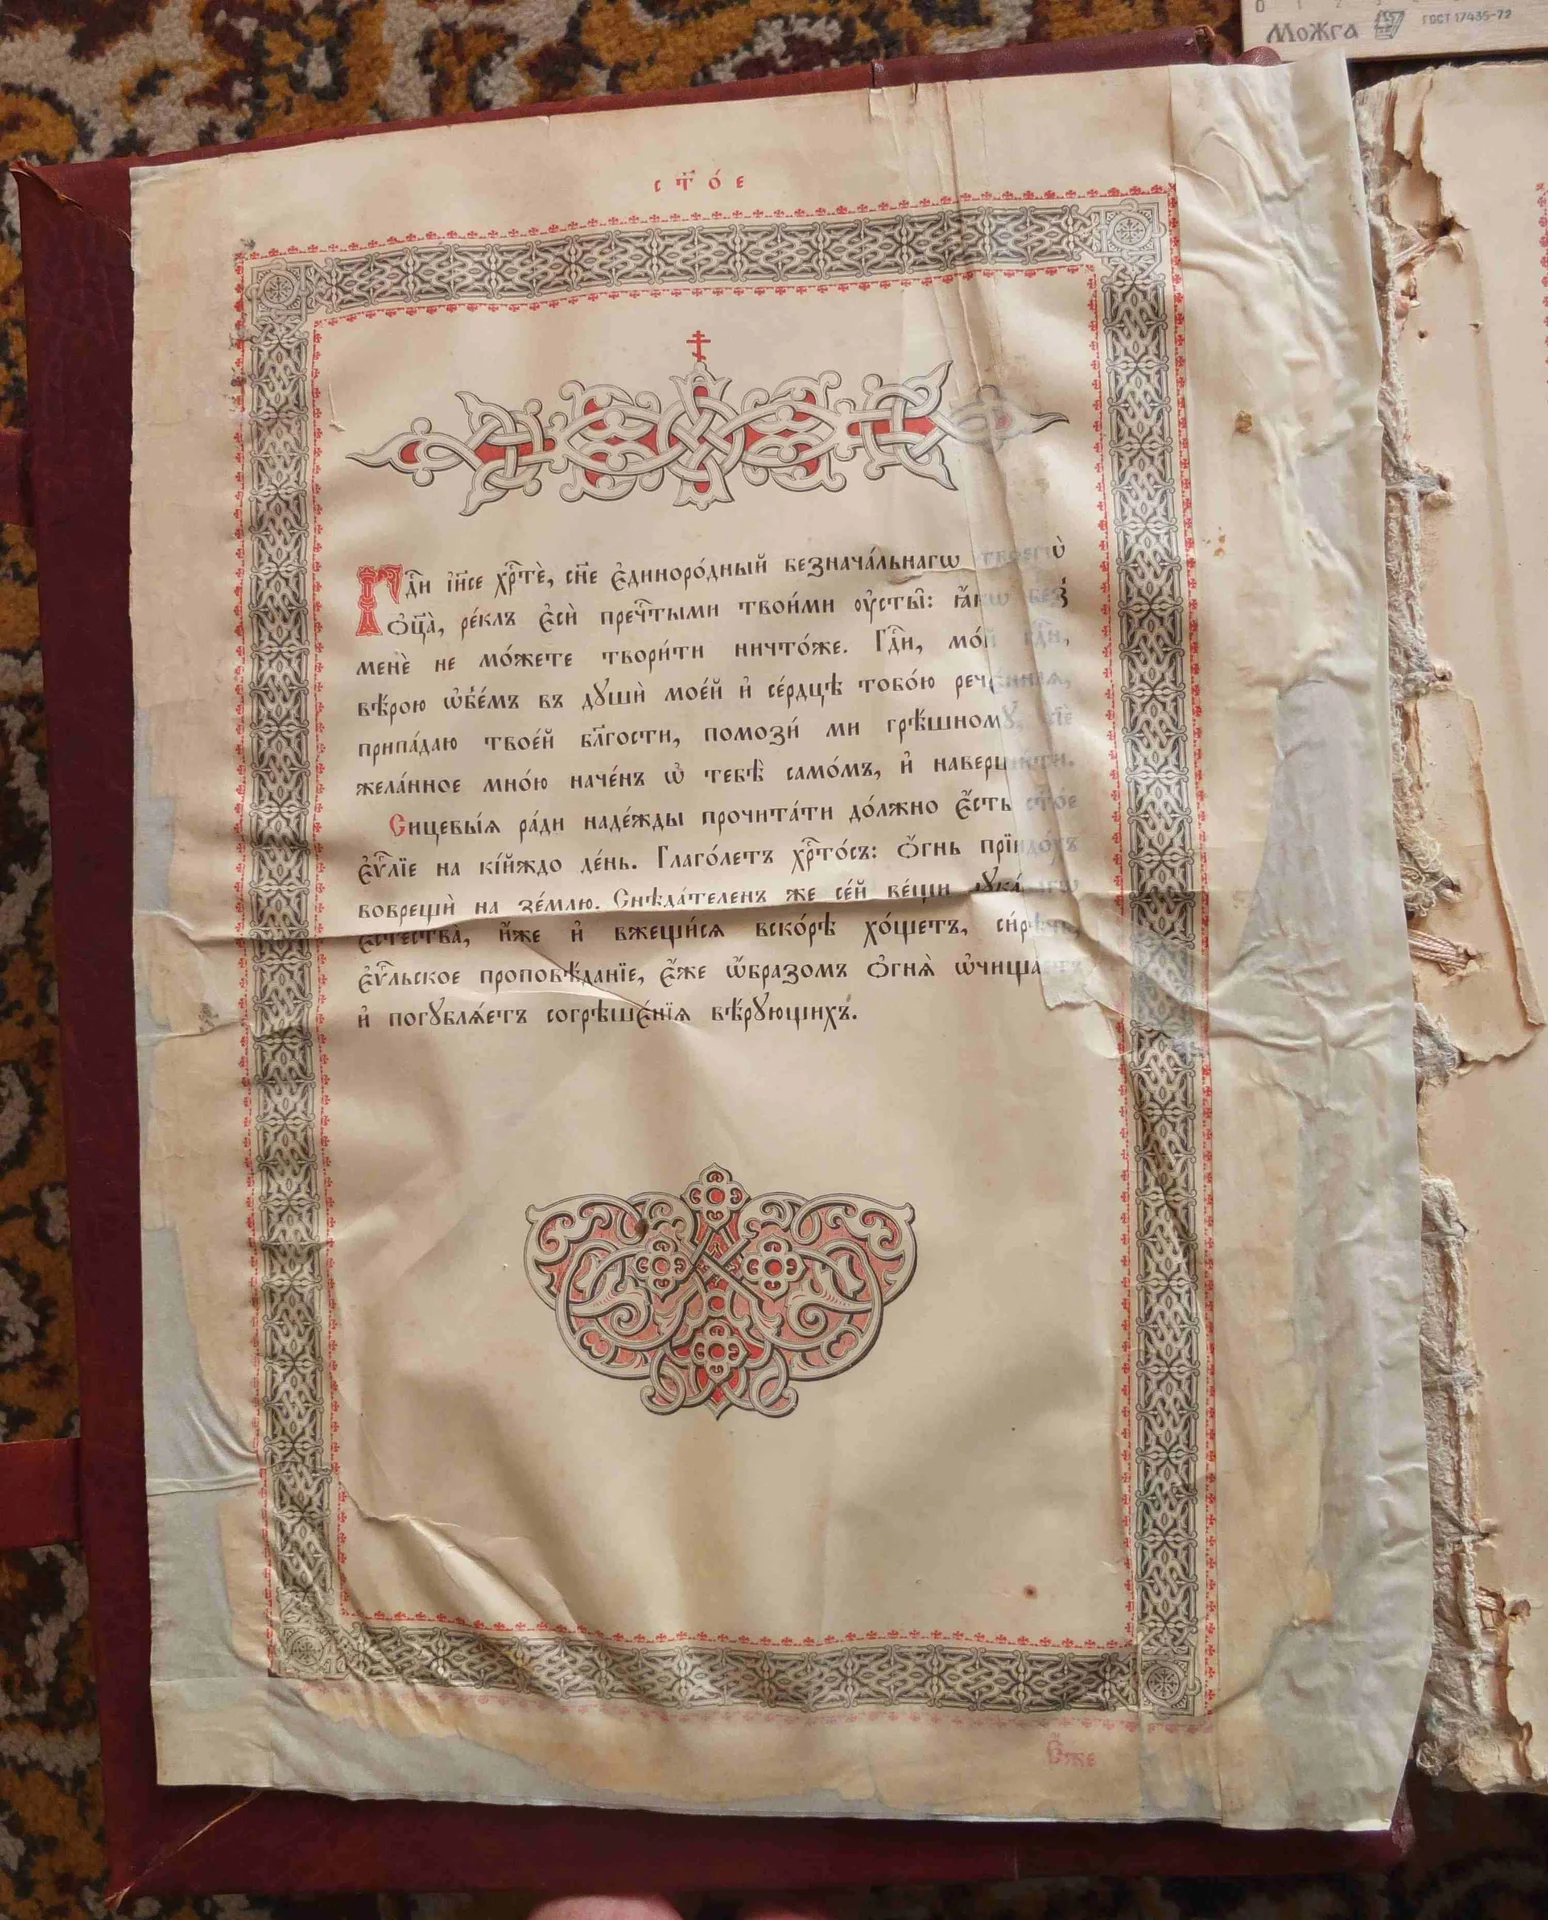 Можга ГОСТ 17435-72
ст҃о́е
Гдⷭ҇и і҆и҃се хрⷭ҇тѐ, сн҃е є҆диноро́дный безнача́льнагѡ твоегѡ̀
ѻ҆ц҃а̀, ре́клъ є҆сѝ пречⷭ҇тыми твои́ми ᲂу҆сты̑: ꙗ҆́кѡ без̾
менѐ не мо́жете твори́ти ничто́же. Гдⷭ҇и, мо́й гдⷭ҇и,
вѣ́рою ѡ҆б̾е́мъ въ дꙋшѝ мое́й и҆ се́рдцѣ тобо́ю рече́ннаѧ,
припа́даю твое́й бл҃гости, помози́ ми грѣ́шномꙋ, сїѐ
жела́нное мно́ю наче́нъ ѡ҆ тебѣ̀ само́мъ, и҆ наверши́ти.
Сицевы́ѧ ра́ди наде́жды прочита́ти до́лжно є҆́сть ст҃о́е
є҆ѵⷢ҇лїе на кі́йждо де́нь. Глаго́летъ хрⷭ҇то́съ: ѻ҆́гнь прїидо́хъ
воврещѝ на зе́млю. Снѣда́теленъ же се́й ве́щи лꙋка́вагѡ
є҆стества̀, и҆́же и҆ вжещи́сѧ вско́рѣ хо́щетъ, си́рѣчь,
є҆ѵⷢ҇льское проповѣ́данїе, є҆́же ѡ҆́бразомъ ѻ҆гнѧ̀ ѡ҆чища́етъ
и҆ погꙋблѧ́етъ согрѣше́нїѧ вѣ́рꙋющихъ.
Є҆́же